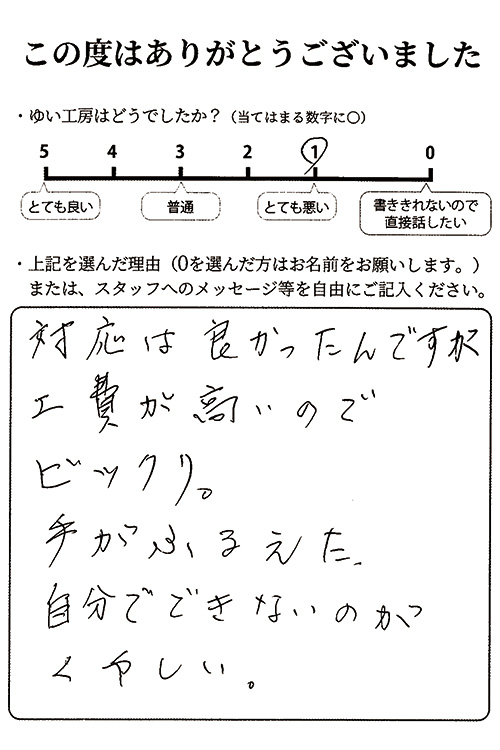 この度はありがとうございました
・ゆい工房はどうでしたか？（当てはまる数字に○）
5 4 3 2 1 0
とても良い 普通 とても悪い 書ききれないので
直接話したい
・上記を選んだ理由（0を選んだ方はお名前をお願いします。）
または、スタッフへのメッセージ等を自由にご記入ください。
対応は良かったんですが
工費が高いので
ビックリ。
手がふるえた、
自分でできないのが
くやしい。